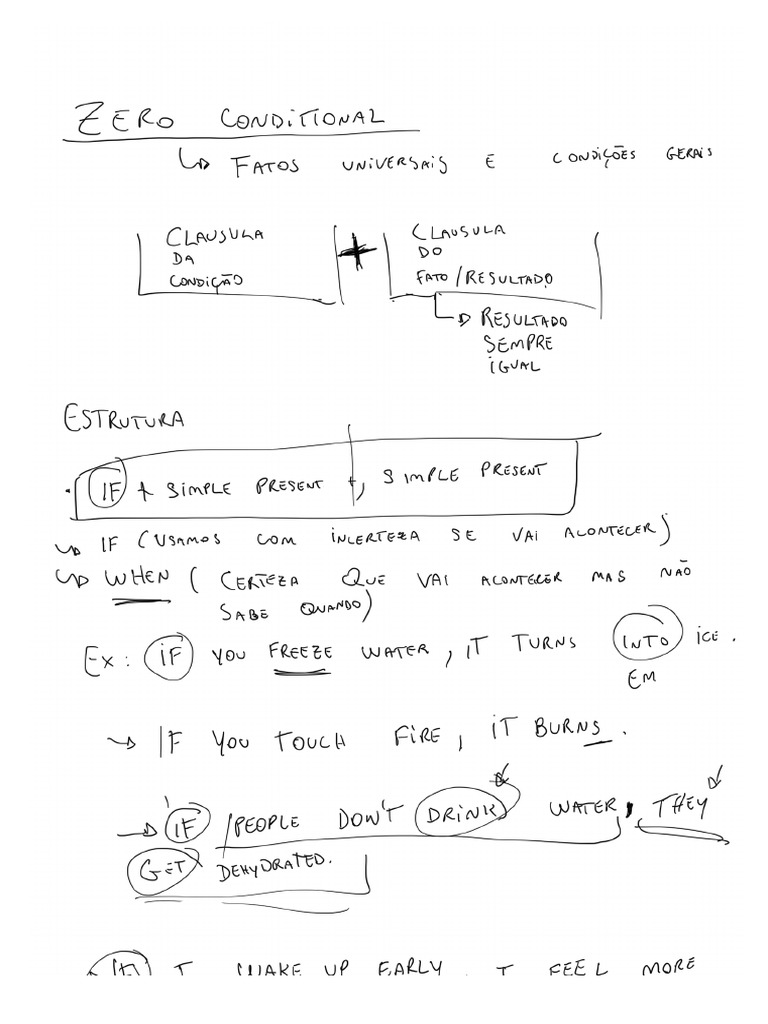 ZERO CONDITIONAL
↳ FATOS UNIVERSAIS E CONDIÇÕES GERAIS
CLAUSULA DA CONDIÇÃO
+
CLAUSULA DO FATO/RESULTADO
→ RESULTADO SEMPRE IGUAL
ESTRUTURA
· IF + SIMPLE PRESENT +, SIMPLE PRESENT
↳ IF (USAMOS COM INCERTEZA SE VAI ACONTECER)
↳ WHEN ( CERTEZA QUE VAI ACONTECER MAS NÃO
SABE QUANDO)
EX: IF YOU FREEZE WATER, IT TURNS INTO ICE.
EM
→ IF YOU TOUCH FIRE, IT BURNS.
→ IF PEOPLE DON'T DRINK WATER, THEY
GET DEHYDRATED.
I WAKE UP EARLY, I FEEL MORE